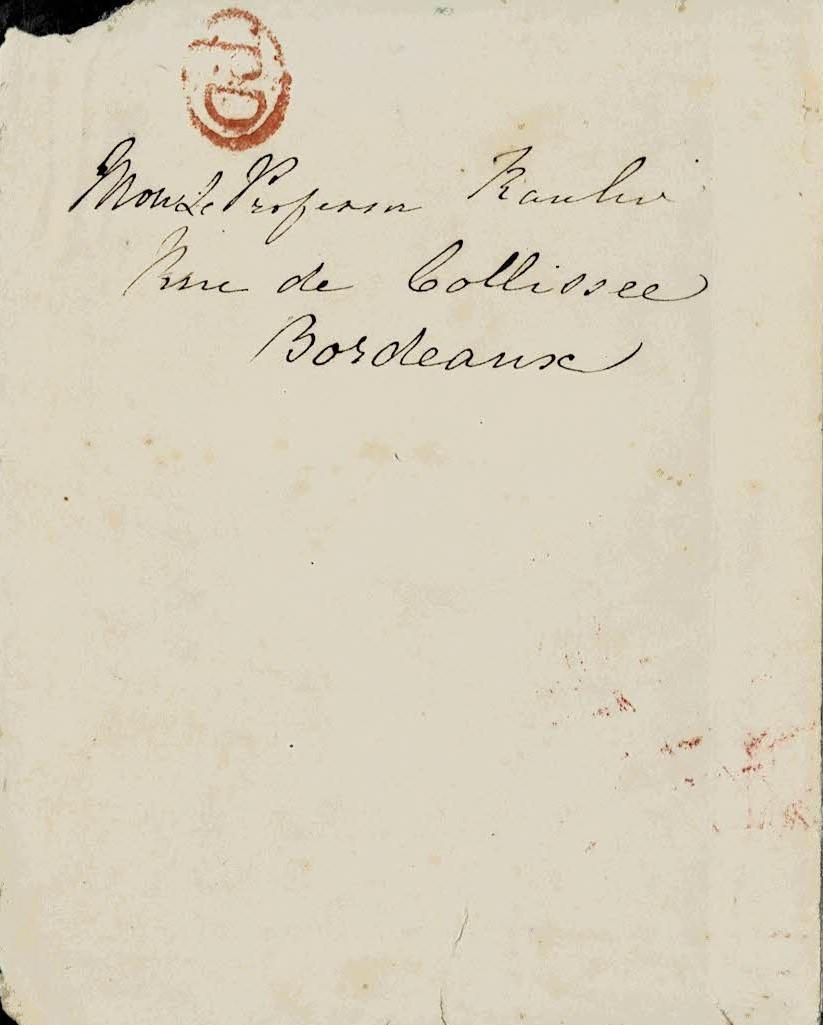 PD
Mons Le Professor Raulin
Rue de Collissee
Bordeaux